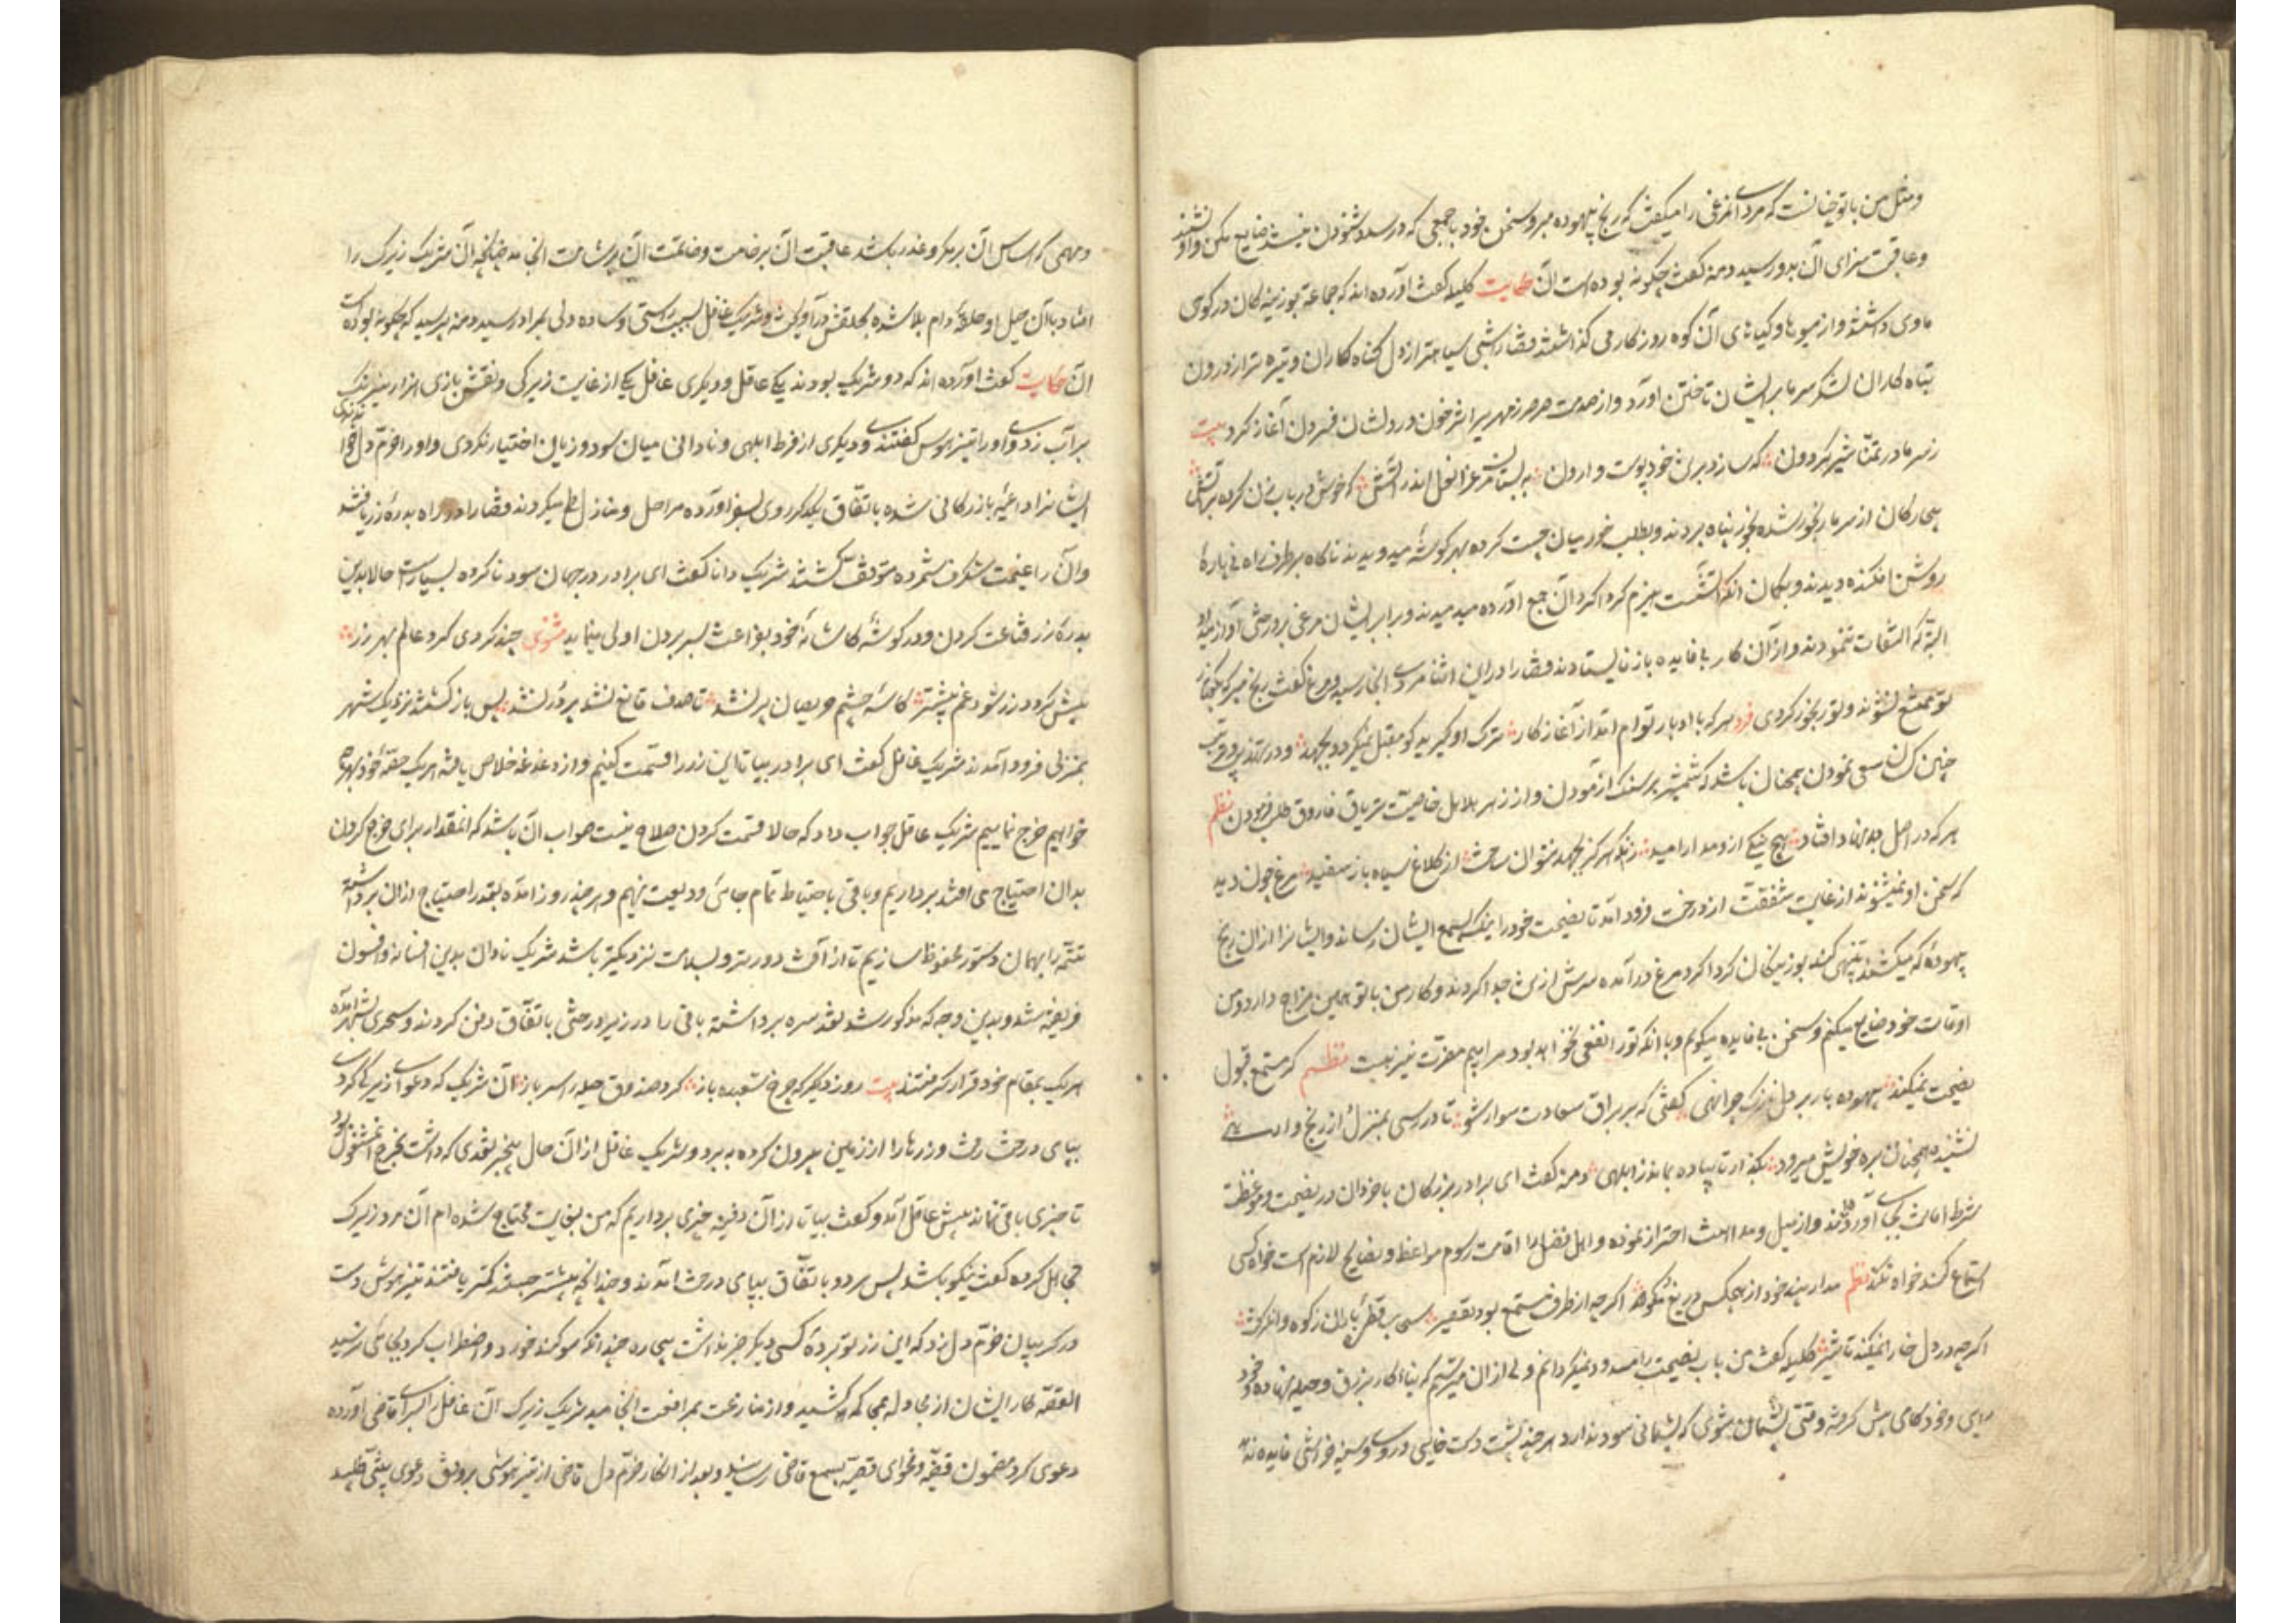 ومثل من با تو چنانست که مردی آنمرغی را میکفت که رنج بیهوده مبر و سخن خود با جمعی که در صدد شنودن نیستند ضایع مکن و او نشنید
وعاقبت سزای آن بدو رسید دمنه کفت چکونه بوده است آن حکایت کلیله کفت آورده اند که جماعة بوزینه کان در کوهی
ماوی داشتند و از میوها و کیاهای آن کوه روزکار می کذاشتند قضا را شبی سیاهتر از دل کناه کاران و تیره تر از درون
تباه کاران لشکر سرما بر ایشان تاختن آورد و از صدمت صرصر زمهریر اثر خون در دلشان فسردن آغاز کرد بیت
ز سرما در تمنا شیر کردون که سازد بر تن خود پوست وارون به بستان مرغ زانغل اندر آتش که خوش در باب زن کرده بر آتش
بیچارکان از سرما رنجور شده بخود پناه بردند و بطلب خود میان چست کرده بهر کوشه میدویدند ناکاه بر طرف راه نی پارهٔ
روشن افکنده دیدند و بکمان انکه آتشست هیزم کردا کرد آن جمع آورده میدمیدند و برابر ایشان مرغی بر درختی آواز میداد
البته که التفات ننمودند و از آن کار بی فایده باز نایستادند قضا را در این اثنا مردی آنجا رسید و مرغ را کفت رنج مبر که بکفتار
تو ممتنع نشوند و تو رنجور کردی فرد هر که با ادبار توام افتد از آغاز کار ترک او کیرید کو مقبل نمیکردد بجهد و در تهذیب و تربیت
چنین کسان سعی نمودن همچنان باشد که شمشیر بر سنک آزمودن و از زهر هلاهل خاصیت تریاق فاروق طلب فرمودن نظم
هر که در اصل بدنهاد افتاد هیچ نیکی ازو مدار امید زانکه هرکز بجهد نتوان ساخت از کلاغ سیاه باز سفید مرغ چون دید
که سخن او نمیشنوند از غایت شفقت از درخت فرود آمد تا نصیحت خود را نیک بسمع ایشان رساند و ایشانرا ازان رنج
بیهودهٔ که میکشند تنبیهی کند بوزینکان کردا کرد مرغ درآمده سرش از تن جدا کردند و کار من با تو همین مزاج دارد و من
اوقات خود ضایع میکنم و سخن بی فایده میکویم و با انکه تو را نفعی نخواهد بود مرا بیم مضرت نیز هست نظم کر مستمع قبول
نصیحت نمیکند بیهوده بار بر دل نازک چرا نهی کفتی که بر براق سعادت سوار شو تا در رسی بمنزل از رنج وارهی
نشنیده همچنان بره خویش میرود بکذار تا پیاده بماند ز ابلهی دمنه کفت ای برادر بزرکان با خردان در نصیحت و موعظت
شرط امانت بجای آورده اند و از میل و مداهنت احتراز نموده و اهل فضل را اقامت رسوم مواعظ و نصایح لازم است خواه کسی
استماع کند خواه نکند نظم مدار پند خود از هیچکس دریغ نکو اکرچه از طرف مستمع بود تقصیر سحاب قطرهٔ باران ز کوه وانکرفت
اکرچه در دل خارا نمیکند تاثیر کلیله کفت من باب نصیحت را مسدود نمیکردانم ولی از ان میترسم که بنا کار بر زرق و حیله نهاده و خود
رایی و خود کامی پیش کرفته وقتی پشیمان شوی که پشیمانی سود ندارد هر چند پشت دست خایی و روی و سینه خراشی فایده ندهد
ومهمی که اساس آن بر مکر و غدر باشد عاقبت آن بر خامت و خاتمت آن بر شامت انجامد چنانچه آن شریک زیرک را
افتاد با آن حیل او حلقهٔ دام بلا شده بحلقش درآویخت و شریک غافل بسبب راستی و ساده دلی بمراد رسید دمنه پرسید که چکونه بوده است
آن حکایت کفت آورده اند که دو شریک بودند یکی عاقل و دیکری غافل یکی از غایت زیرکی و نقش بازی هزار نیرنک
بر آب زدی و او را تیزهوش کفتندی و دیکری از فرط ابلهی و نادانی میان سود و زیان اختیار نکردی و او را خرم دل خواندندی
ایشانرا داعیهٔ بازرکانی شده باتفاق یکدیکر روی بسفر آورده مراحل و منازل طی میکردند قضا را در راه بدرهٔ زر یافتند
و آن را غنیمت شکرف شمرده متوقف کشتند شریک دانا کفت ای برادر در جهان سود ناکرده بسیارست حالا بدین
بدرهٔ زر قناعت کردن و در کوشهٔ کاشانهٔ خود بفراغت بسر بردن اولی مینماید مثنوی چند کردی کرد عالم بهر زر
بیش کردد زر شود غم بیشتر کاسهٔ چشم حریصان پر نشد تا صدف قانع نشد پر در نشد پس باز کشتند نزدیک شهر
بمنزلی فرود آمدند شریک غافل کفت ای برادر بیا تا این زر را قسمت کنیم و از دغدغه خلاص یافته هر یک حصهٔ خود بهرچه
خواهیم خرج نماییم شریک عاقل جواب داد که حالا قسمت کردن صلاح نیست صواب آن باشد که انمقدار برای خرج کردن
بدان احتیاج می افتد برداریم و باقی باحتیاط تمام جایی ودیعت نهیم و هر چند روز آمده بقدر احتیاج ازان برداشته
تتمه را بهمان دستور محفوظ سازیم تا از آفت دورتر و بسلامت نزدیکتر باشد شریک نادان بدین افسانه و افسون
فریفته شد و بدین وجه که مذکور شد نقد سره برداشته باقی را در زیر درختی باتفاق دفن کردند و سحری بشهر آمده
هر یک بمقام خود قرار کرفتند بیت روز دیکر که چرخ شعبده باز کرد صندوق حیله را سر باز آن شریک که دعوای زیرکی کردی
بپای درخت رفت و زرها را از زمین بیرون کرده به برد و شریک غافل از آن حال بیخبر نقدی که داشت بخرج مشغول بود
تا چیزی باقی نماند پیش عاقل آمد و کفت بیا تا از آن دفینه چیزی برداریم که من بغایت محتاج شده ام آن مرد زیرک
تجاهل کرده کفت نیکو باشد پس هر دو باتفاق بپای درخت آمدند و چندانچه بیشتر جستند کمتر یافتند تیزهوش دست
در کریبان خرم دل زد که این زر تو بردهٔ کسی دیکر خبر نداشت بیچاره چندانکه سوکند خورد و اضطراب کرد بجایی نرسید
القصه کار ایشان از مجادله بمحاکمه کشید و از منازعت بمرافعت انجامید شریک زیرک آن غافل را بسرای قاضی آورده
دعوی کرد مضمون قضیه و فحوای قصه بسمع قاضی رسانید و بعد از انکار خرم دل قاضی از تیزهوشی بر وفق دعوی بینتی طلبید